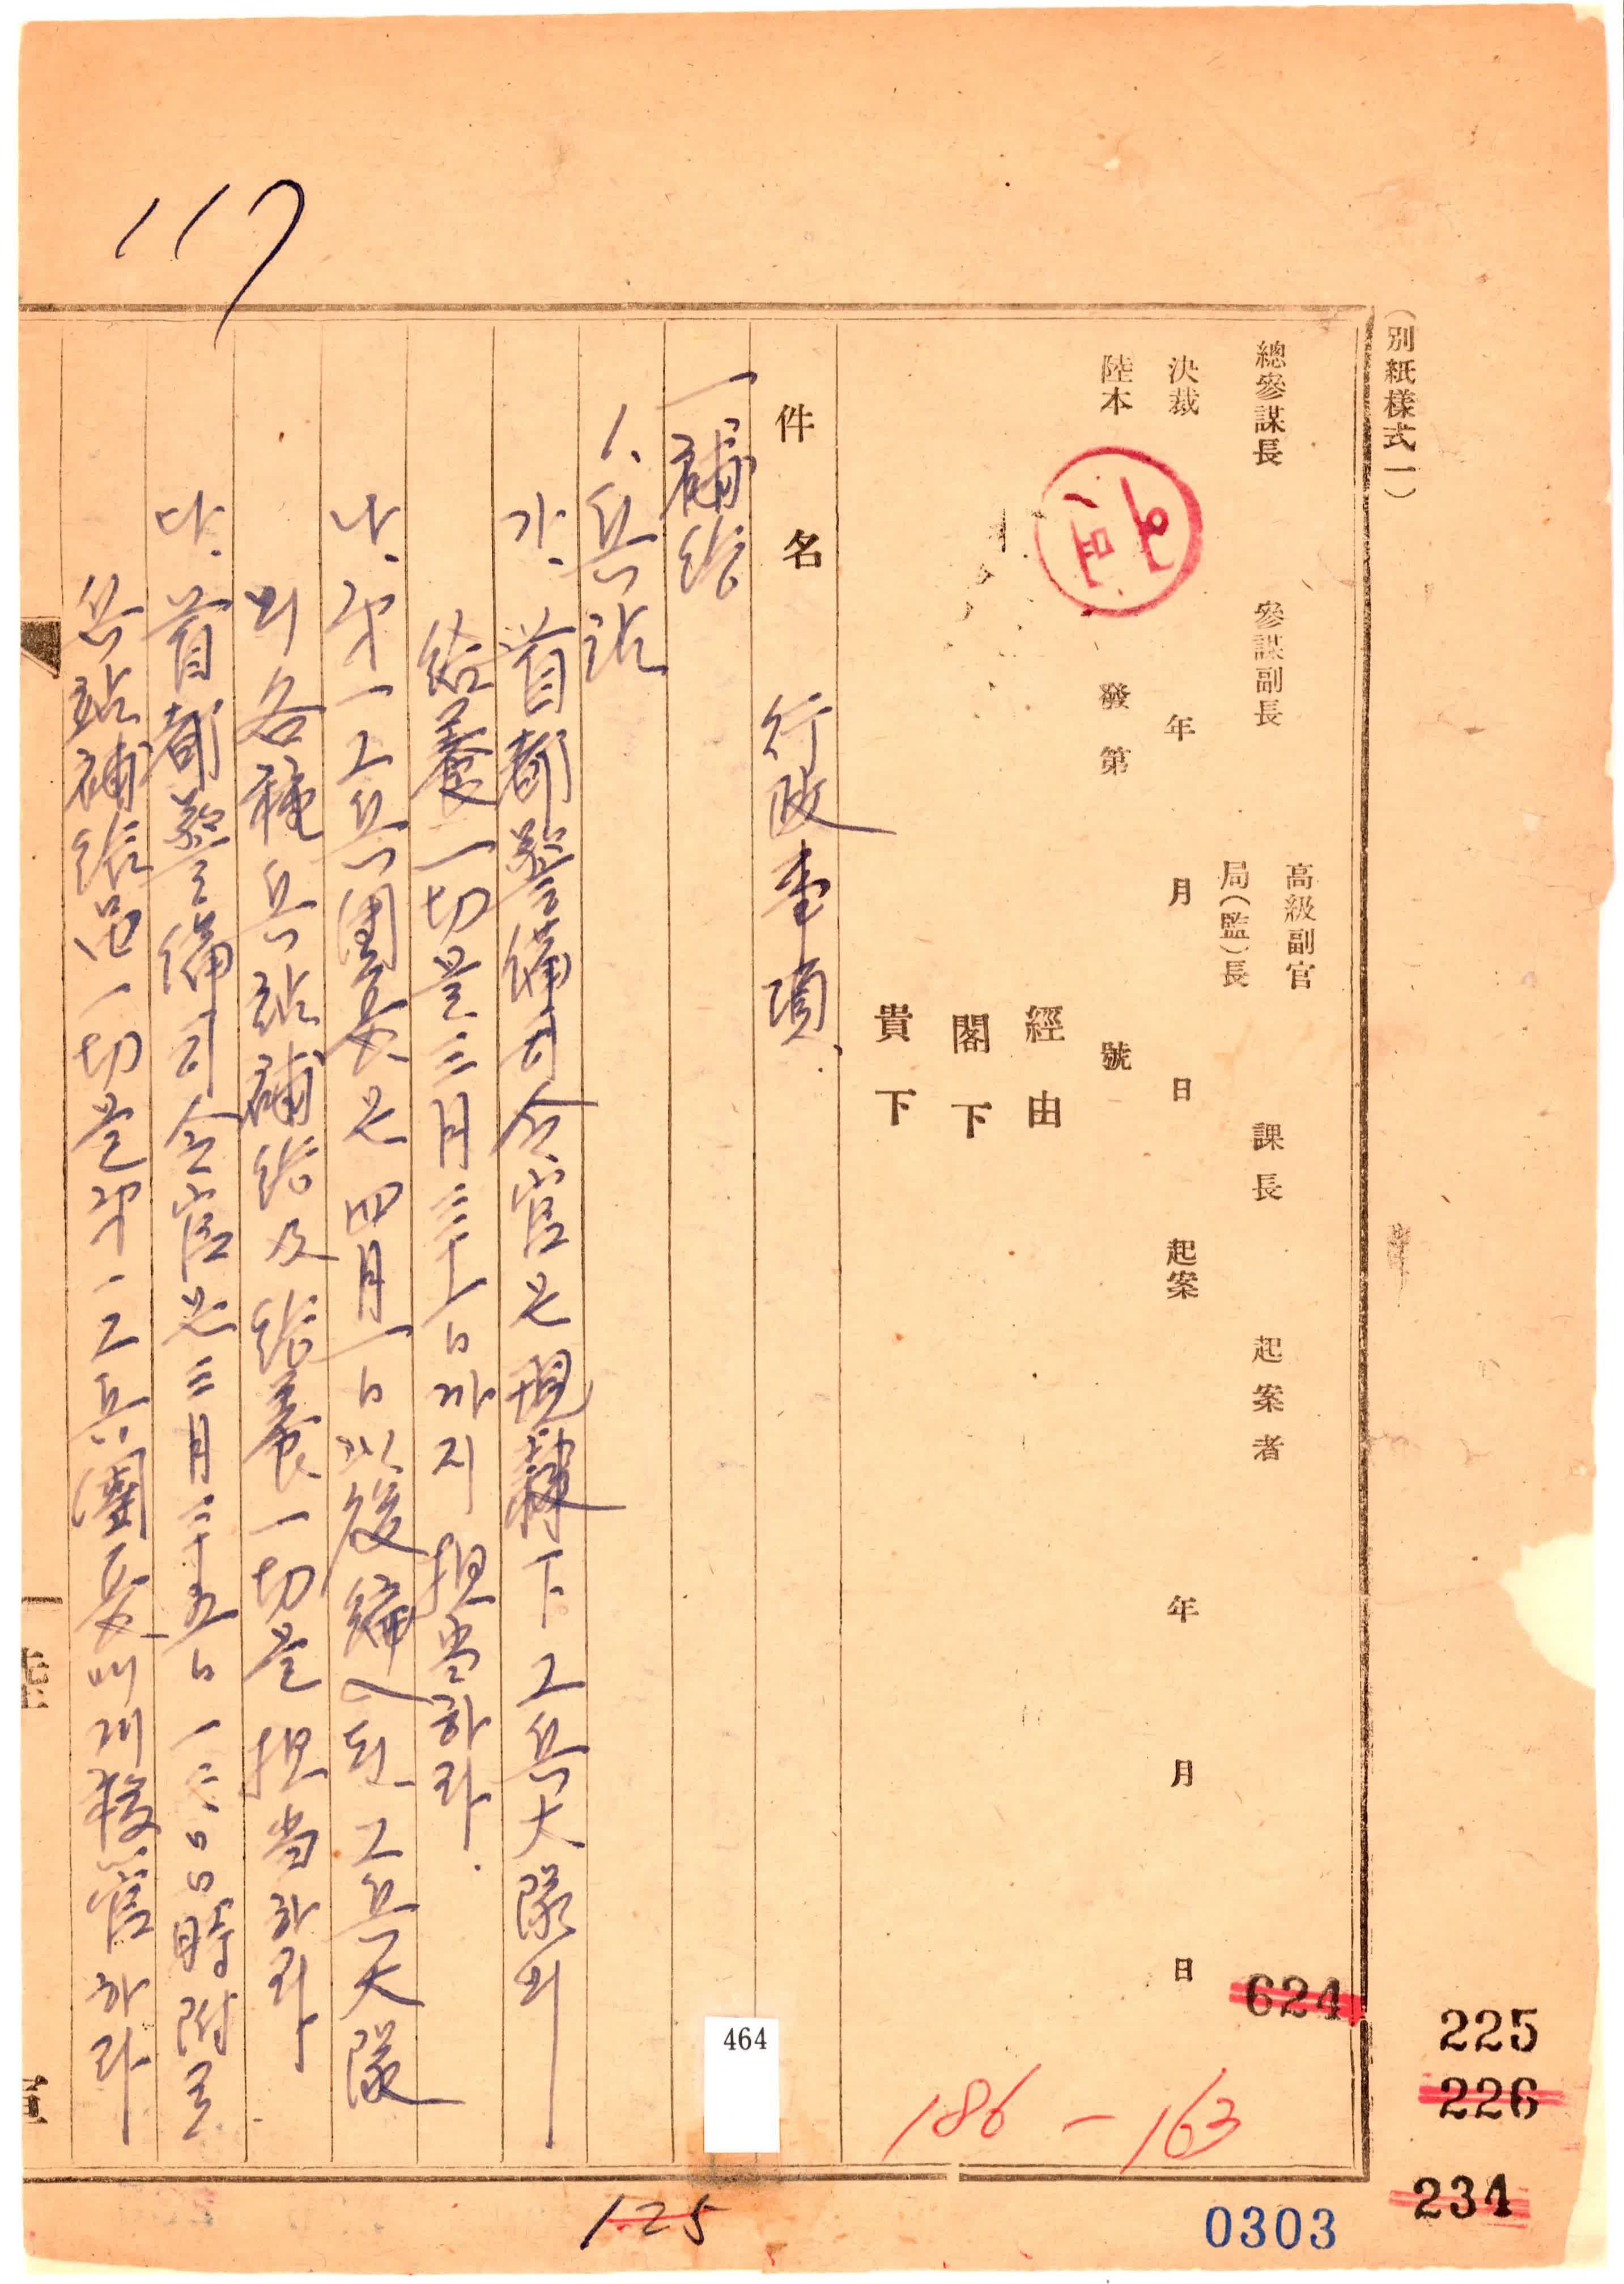 (別紙樣式一)
總參謀長 參謀副長 高級副官 局(監)長 課長 起案者
決裁 年 月 日 起案 年 月 日
陸本 發第 號
經由
閣下
貴下
件名 行政事項.
一 補給
1. 兵站
가. 首都警備司令官은 現隸下工兵大隊의
給養一切을 三月三十一日까지 担当하라.
나. 第一工兵團長은 四月一日以後編入된 工兵大隊
의 各種兵站補給及給養一切을 担当하라
다. 首都警備司令官은 三月二十五日一二〇〇時附로
兵站補給品一切을 第一工兵團長에게 移管하라
117
464
624
225
226
234
186-163
125
0303